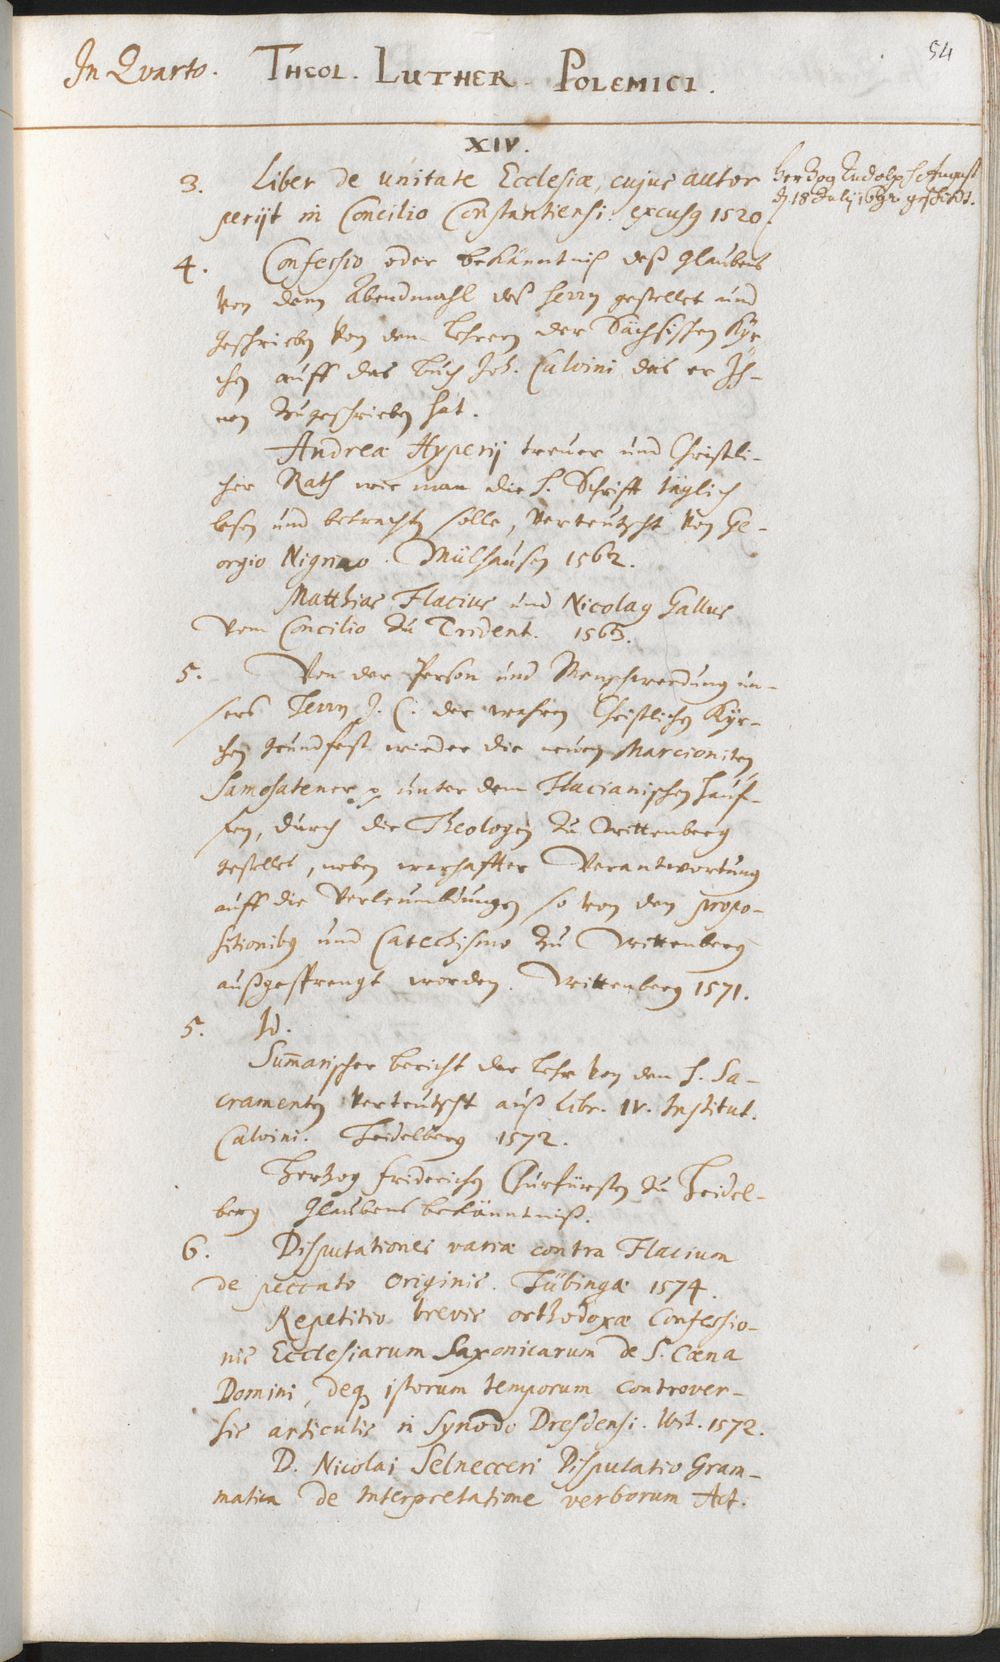 54
In Qvarto. THEOL. LUTHER. POLEMICI.
XIV.
3. Liber de unitate Ecclesiæ, cujus autor
perijt in Concilio Constantiensi. excusq 1520.
Hertzog Rudolph August
d. 18 Julij 1692 geschickt.
4. Confessio oder bekänntniß deß Glaubens
von dem Abendmahl deß Herrn gestellet und
geschrieben von den Lehrern der Sächsischen Kyr-
chen auff das buch Joh. Calvini das er Ih-
nen zugeschrieben hat.
Andreæ Hyperij treuer und Christli-
cher Rath wie man die H. Schrifft täglich
lesen und betrachten solle, verteutscht von Ge-
orgio Nigrino. Mülhausen 1562.
Matthias Flacius und Nicolaq Gallus
vom Concilio zu Trident. 1563.
5. Von der Person und Menschwerdung un-
sers Herrn J. C. der wahren Christlichen Kyr-
chen grundfest wieder die neuen Marcioniten,
Samosatener p. unter dem Flacianischen hauf-
fen, durch die Theologen zu Wittenberg
gestellet, neben warhaffter Verantwortung
auff die Verleumbdungen so von den propo-
sitionibq und Catechismo zu Wittenberg
außgesprengt worden. Wittenberg 1571.
5. Id.
Sum̄arischer bericht der Lehr von den H. Sa-
cramenten verteutscht auß Libr. IV. Institut.
Calvini. Heidelberg 1572.
Hertzog friderichen Churfürsten zu Heidel-
berg Glaubens bekänntniß.
6. Disputationes variæ contra Flacium
de peccato Originis. Tübingæ 1574.
Repetitio brevis orthodoxæ Confessio-
nis Ecclesiarum Saxonicarum de S. Cœna
Domini, deq istorum temporum controver-
sis articulis in Synodo Dresdensi. Wit. 1572.
D. Nicolai Selnecceri Disputatio Gram-
matica de Interpretatione verborum Act.